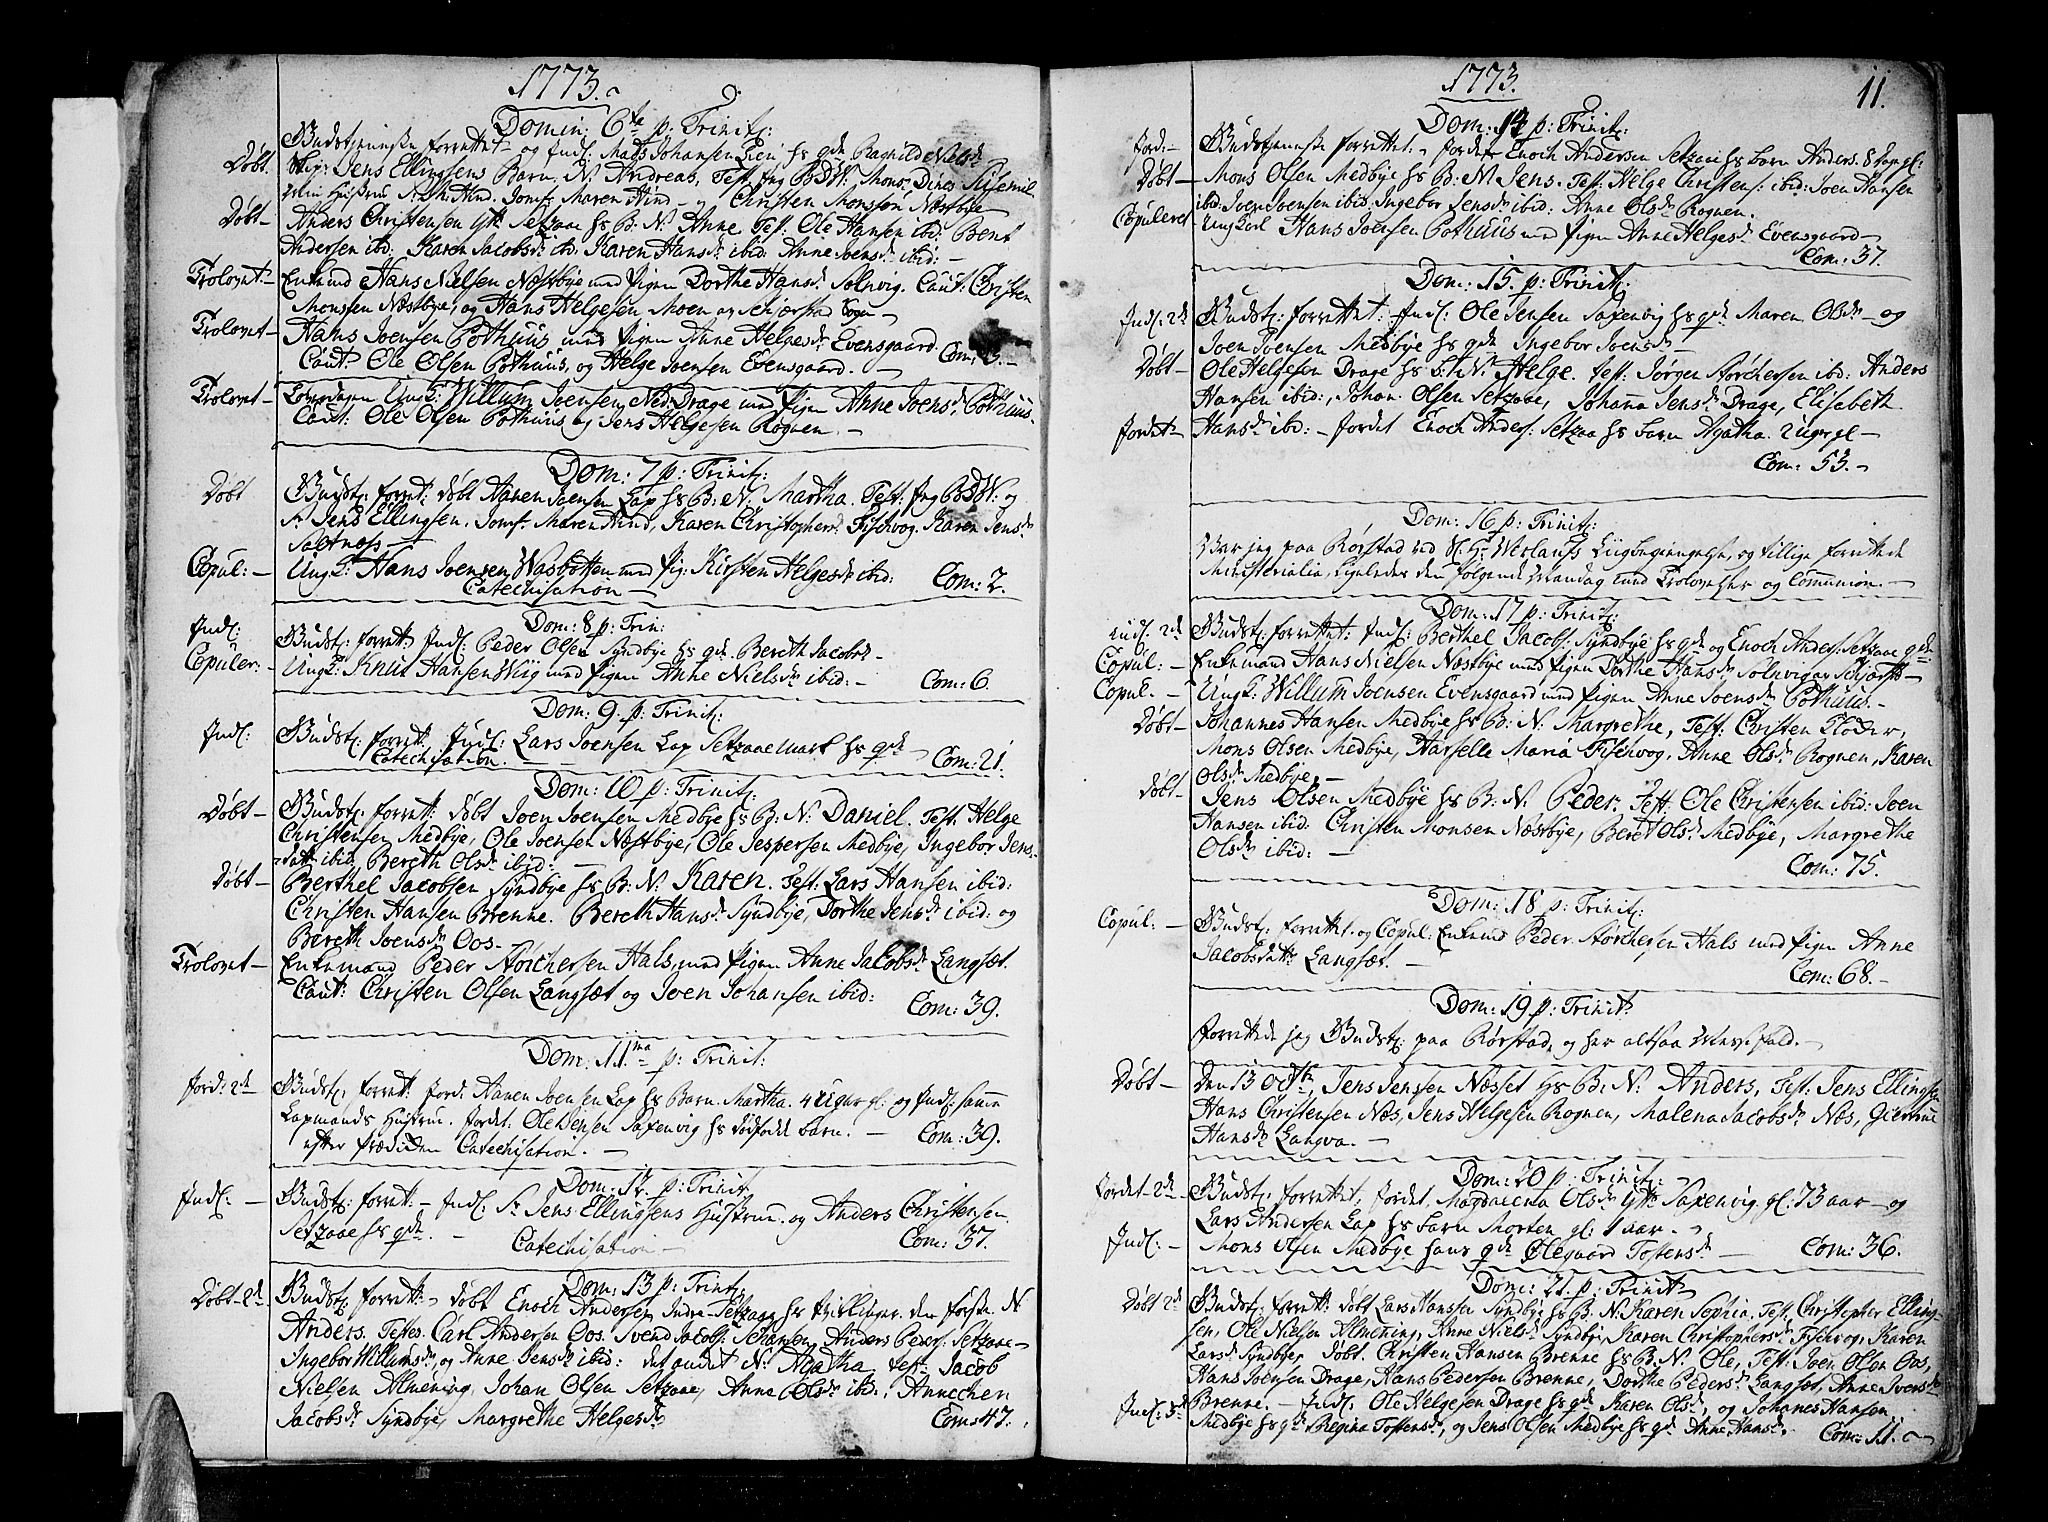 1773.
Domin: 6ta p: Trinit:
Gudstieneste forrettet og Indl: Mads Johansen Lien hs qde Raghild Nielsdr
Døbt. Jens Ellingsens Barn. N. Andreas, Test: Jeg Mons: Dines
Hustrue Hind. Jomf: Maren Hind og Christen Monsøn Næstbye
Døbt Anders Christensen Ytt: Setzaae hs B: N: Anne Test: Ole Hansen ibid: Bent
Andersen ibd: Karen Jacobsdr ibid: Karen Hansdr ibid: Anne Joensdr ibid:
Trolovet Enkemd Hans Nielsen Næstbye med Pigen Dorthe Hansdr Solvig. Caut: Christen
Monsen Næstbye, og Hans Helgesen Moen av Schjerstad Sogn
Trolovet Hans Joensen Bothuus med Pigen Anne Helgesdr Evensgaard.
Caut: Ole Olsen Bothuus, og Helge Joensen Evensgaard. Com:
Trolovet Ungk: Willum Joensen Ned: Drage med Pigen Anne Joensdr Bothuus.
Caut: Ole Olsen Bothuus og Jens Helgesen Rognen.
Dom: 7 p: Trinit:
Døbt Gudst: forret: døbt Aaren Joensen Lap hs B: N: Martha. Test: Jeg og
Sr Jens Ellingsen. Jomf: Maren Hind, Karen Christophers: Fischvog. Karen Jensdr
Saltnæss
Copul: Ungk: Hans Joensen Wasbotten med Pig: Kirsten Helgesdr ibid: Com: 2.
Catechisation
Dom: 8 p: Trin:
Indl: Gudst: forrett: Indl: Peder Olsen Syndbye hs qde Bereth Jacobsdr
Copuler: Ungk: Knut Hansen Wiig med Pigen Anne Nielsdr ibid: Com: 6.
Dom: 9. p: Trinit:
Indl: Gudst: forrett: Indl: Lars Joensen Lap Setzaae mark hs qde Com: 21.
Catechisation.
Dom: 10 p: Trinit:
Døbt Gudst: forrett: døbt Joen Joensen Medbye hs B: N: Daniel. Test: Helge
Christensen Medbye, Ole Joensen Næstbye, Ole Jespersen Medbye, Ingebor Jens-
datt: ibid: Bereth Olsdr ibid:
Døbt Berthel Jacobsen Syndbye hs B: N: Karen. Test: Lars Hansen ibid:
Christen Hansen Brenne. Bereth Hansdr Syndbye, Dorthe Jensdr ibid: og
Bereth Joensdr Oos.
Trolovet Enkemand Peder Størchersen Hals, med Pigen Anne Jacobsdr Langsæt.
Caut: Christen Olsen Langsæt og Joen Johansen ibid: Com: 39.
Dom: 11ma p: Trinit:
Jord: 2de Gudst: forrett: Jord: Aaren Joensen Lap hs Barn. Martha. 4 Uger gl: og Indl: samme
Lapmands Hustrue. Jordet. Ole Jensen Saxenvig hs dødfødde barn. Com: 39.
efter Prædiken Catechisation.
Dom: 12 p: Trinit:
Indl: Gudst: forrett: Indl: Sr Jens Ellingsens Hustrue. og Anders Christensen
Setzaae hs qde. Catechisation Com: 37.
Dom: 13 p: Trinit:
Døbt 2de Gudst: forrett: døbt Enoch Andersen Indre Setzaae hs Tvillinger. den første N
Anders. Testes. Carl Andersen Oos. Svend Jacobs: Anders Peders: Setzaae
Ingebor Willumsdr, og Anne Jensdr ibid: det andet N: Agatha, test: Jacob
Nielsen Almening, Johan Olsen Setzaae, Anne Olsdr ibid:, Annechen
Jacobsdr Syndbye, Margrethe Helgesdr Com: 47.
1773. 11.
Dom: 14 p: Trinit:
Jord: Gudstieneste forrettet. jordet Enoch Andersen Setzaae hs Barn Anders. 8 dage gl:
Døbt Mons Olsen Medbye hs B: N Jens. Test: Helge Christens: ibid: Joen Hansen
ibid: Joen Joensen ibid: Ingebor Jensdr ibid: Anne Olsdr Rognen.
Copuleret Ung Karl Hans Joensen Bothuus med Pigen Anne Helgesdr Evensgaard
Com: 37.
Dom: 15. p: Trinit:
Indl: 2de Gudst: forrettet: Indl: Ole Jensen Saxenvig hs qde Maren Olsdr og
Joen Joensen Medbye hs qde Ingebor Joensdr
Døbt Ole Helgesen Drage hs b: N: Helge. Test: Jørgen Størchersen ibid: Anders
Hansen ibid:, Johan Olsen Setzaae, Johanna Jensdr Drage, Elisabeth
Jordet Hansdr ibid: jordet Enoch Anders: Setzaa hs barn Agatha. 2 uger gl
Com: 53.
Dom: 16 p: Trinit:
Var jeg paa Rørstad ved Sl: Hr Werlaufs Liigbegiengelse, og tillige forrettede
Ministerialia, ligeledes den følgende Mandag med Trolovelser og Communion.
Dom: 17 p: Trinit:
indl: 2de Gudst: forrettet: Indl: Berthel Jacobs: Syndbye hs qde og Enoch Anders: Setzaae qde
Copul: Enkemand Hans Nielsen Næstbye med Pigen Dorthe Hansdr Solvig av Schjerst:
Copul. Ungk: Willum Joensen Evensgaard med Pigen Anne Joensdr Bothuus.
Døbt Johannes Hansen Medbye hs B: N: Margrethe, Test: Christen Kloder,
Mons Olsen Medbye, Harselle Maria Fischvog, Anne Olsdr Rognen, Karen
Olsdr Medbye,
døbt Jens Olsen Medbye hs B: N: Peder. Test: Ole Christensen ibid: Joen
Hansen ibid: Christen Monsen Næstbye, Beret Olsdr Medbye, Margrethe
Olsdr ibid: Com: 75.
Dom: 18 p: Trinit:
Copul: Gudst: forrettet. og Copul: Enkemd Peder Størchersen Hals med Pigen Anne
Jacobsdatt: Langsæt. Com: 68.
Dom: 19 p: Trinit:
forrettede jeg Gudst: paa Rørstad, og her altsaa Messefald.
Døbt Den 13 Octbr, Jens Jensen Næsset hs B: N: Anders, Test: Jens Ellingsen
Hans Christensen Næs, Jens Helgesen Rognen, Malena Jacobsdr Næs, Giertrue
Hansdr Langva.
Dom: 20 p: Trinit:
Jordet 2de Gudst: forrettet, jordet. Magdalena Olsdr Ytt: Saxenvig gl: 73 aar og
Lars Andersen Lap hs barn Morten gl: 1 aar.
Indl: Mons Olsen Medbye hans qde Olegaard Tostensdr Com: 36.
Dom: 21. p: Trinit
Døbt 2de Gudst: forrett: døbt Lars Hansen Syndbye hs B: N: Karen Sophia, Test: Christopher Elling-
sen, Ole Nielsen Almening, Anne Nielsdr Syndbye, Karen Christophersdr Fischvog, Karen
Larsdr Syndbye, døbt. Christen Hansen Brenne hs B: N: Ole, Test: Joen Olsen Oos,
Hans Joensen Drage, Hans Pedersen Brenne, Dorthe Pedersdr Langsæt, Anne Iversdr
Brenne. Indl: Ole Helgesen Drage hs qde Karen Olsdr, og Johanes Hansen
Indl: 3de Medbye hs qde Regina Tostensdr, og Jens Olsen Medbye hs qde Anne Hansdr. Com: 11.